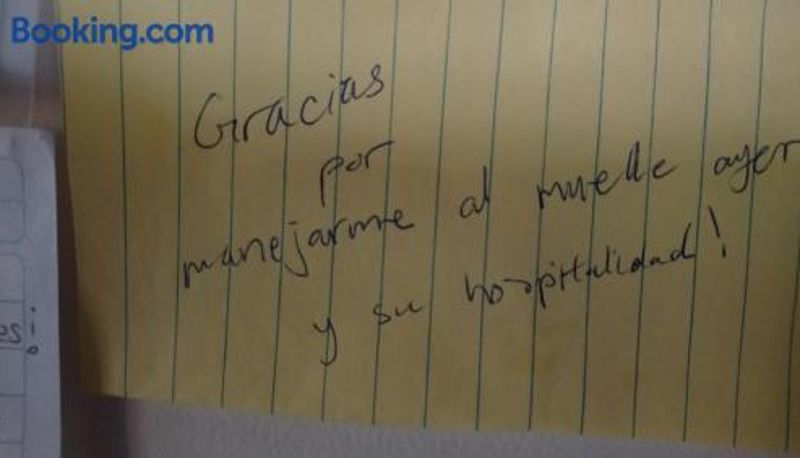 Booking.com
Gracias
por
manejarme al muelle ayer
y su hospitalidad!
es!